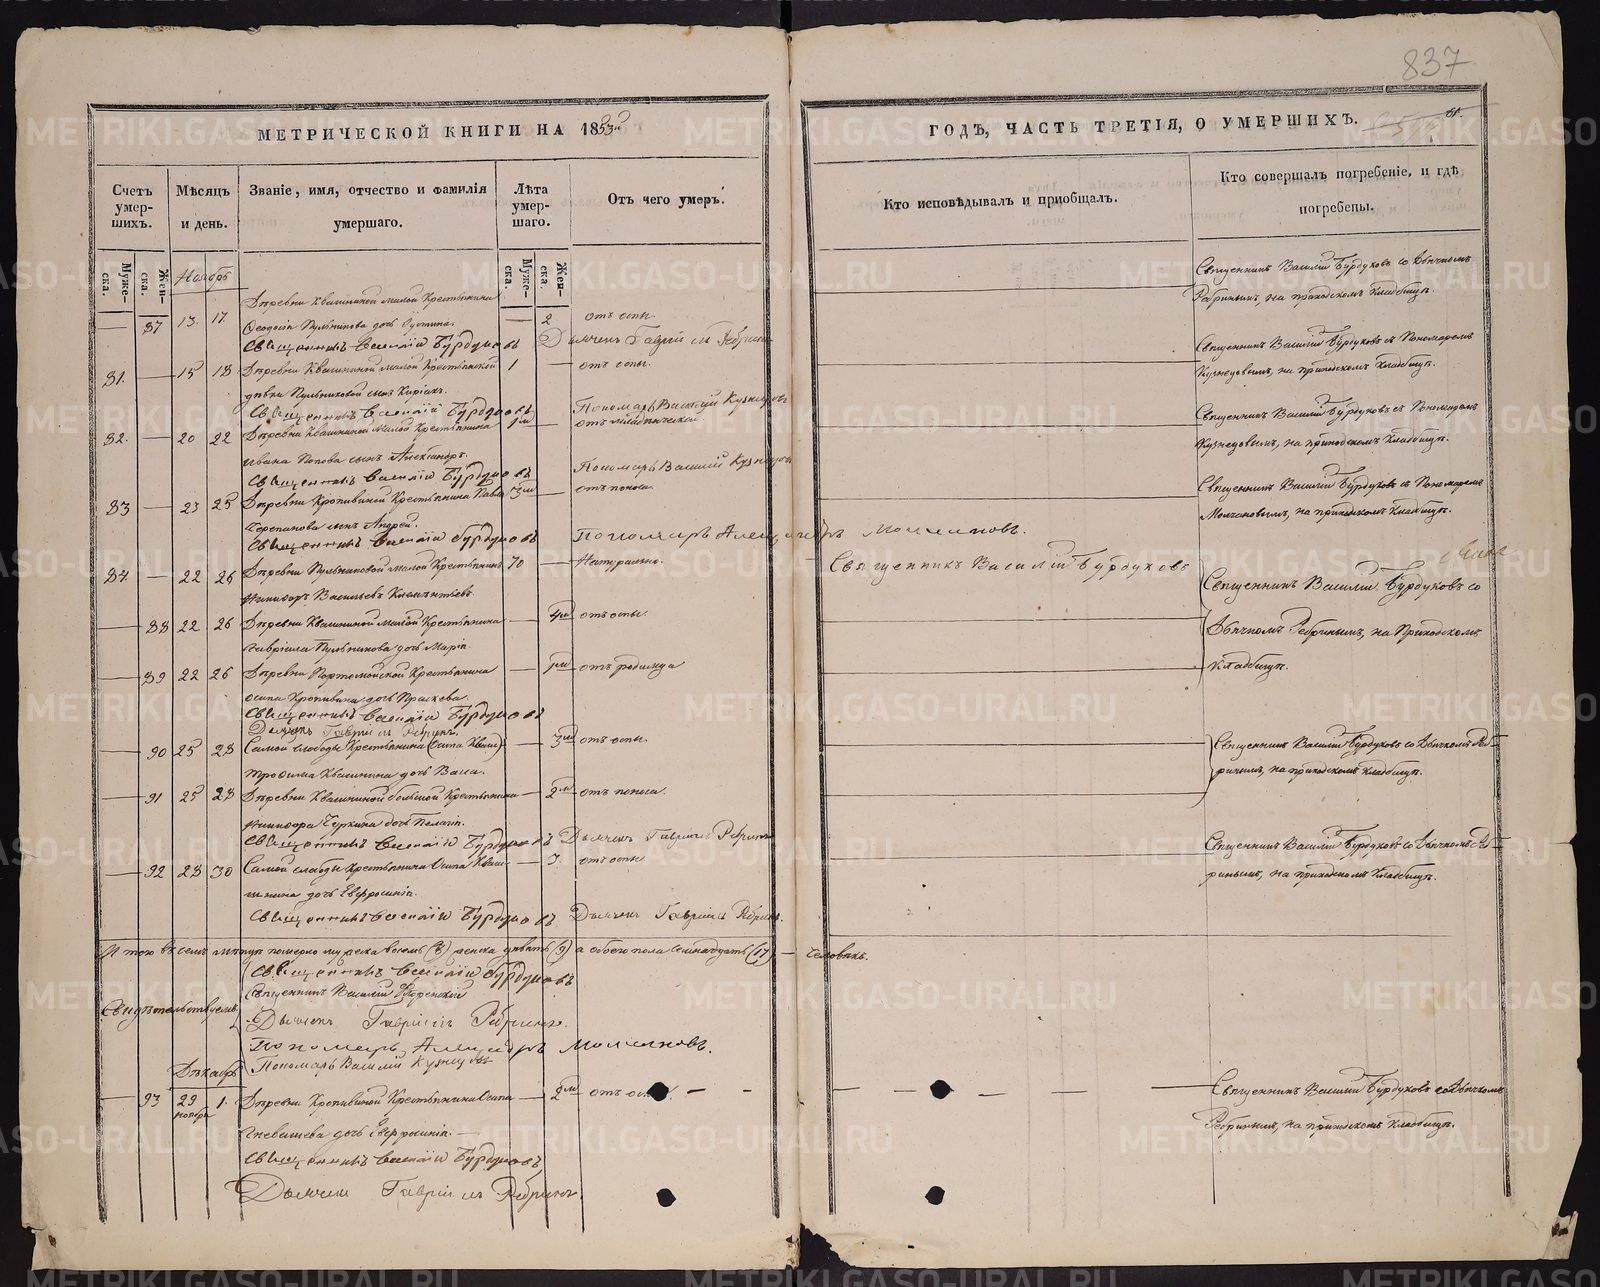 837
МЕТРИЧЕСКОЙ КНИГИ НА 1853й
Счетъ умер-
шихъ.
Мѣсяцъ
и день.
Званіе, имя, отчество и фамилія
умершаго.
Лѣта
умер-
шаго.
Отъ чего умеръ.
Муже-
ска.
Жен-
ска.
Ноябрь
Муже-
ска.
Жен-
ска.
Деревни Квашниной малой Крестьянина
87 13. 17 дочь 2 отъ оспы.
Священникъ Василій Бурдуковъ Дьячекъ Гавріилъ Ребринъ
81. 15 18 Деревни Квашниной малой Крестьянской 1 отъ оспы.
дѣвки Пульниковой сынъ Киріакъ.
Священникъ Василій Бурдуковъ Пономарь Василій Кузнецовъ
82. 20 22 Деревни Квашниной малой Крестьянина отъ младенческой
Ивана Попова сынъ Александръ.
Священникъ Василій Бурдуковъ Пономарь Василій Кузнецовъ
83 23 25 Деревни Кропивиной Крестьянина Павла 3м отъ поноса
сынъ Андрей.
Священникъ Василій Бурдуковъ Пономарь Александръ Молчановъ.
84 22 26 Деревни Пульниковой малой Крестьянинъ 70 Натурально.
Никифоръ Васильевъ Клементьевъ.
88 22 26 Деревни Квашниной малой Крестьянина 4м отъ оспы.
Гавріила Пульникова дочь Марія
89 22 26 Деревни Портомойской Крестьянина отъ родимца
Осипа Кропивина дочь Праскева.
Священникъ Василій Бурдуковъ
Дьячекъ Гавріилъ Ребринъ.
90 25 28 Самой слободы Крестьянина 3м отъ оспы.
Трофима Квашнина дочь Васса.
91 25 28 Деревни Квашниной большой Крестьянина 2м отъ поноса.
Никифора Чуркина дочь Пелагія.
Священникъ Василій Бурдуковъ Дьячекъ Гавріилъ Ребринъ
92 28 30 Самой слободы Крестьянина Осипа Кваш- отъ оспы
шнина дочь Евфросинія.
Священникъ Василій Бурдуковъ Дьячекъ Гавріилъ Ребринъ.
Итого въ семъ мѣсяцѣ померло мужеска восемь (8) женска девять (9) а обоего пола семнадцать (17) — человѣкъ.
Священникъ Василій Бурдуковъ
Священникъ Василій
Свидѣтельствуемъ:
Дьячекъ Гавріилъ Ребринъ.
Пономарь Александръ Молчановъ.
Пономарь Василій Кузнецовъ
Декабрь
93 29 1. Деревни Кропивиной Крестьянина Осипа 2м отъ
ноября
дочь Евфросинія.
Священникъ Василій Бурдуковъ,
Дьячекъ Гавріилъ Ребринъ.
ГОДЪ, ЧАСТЬ ТРЕТІЯ, О УМЕРШИХЪ.
Кто исповѣдывалъ и пріобщалъ.
Кто совершалъ погребеніе, и гдѣ
погребены.
Священникъ Василій Бурдуковъ со Дьячкомъ
Ребринымъ, на приходскомъ Кладбищѣ.
Священникъ Василій Бурдуковъ съ Пономаремъ
Кузнецовымъ, на приходскомъ Кладбищѣ.
Священникъ Василій Бурдуковъ съ Пономаремъ
Кузнецовымъ, на приходскомъ Кладбищѣ.
Священникъ Василій Бурдуковъ съ Пономаремъ
Молчановымъ, на приходскомъ Кладбищѣ.
Священникъ Василій Бурдуковъ
Священникъ Василій Бурдуковъ со
Дьячкомъ Ребринымъ, на Приходскомъ
Кладбищѣ.
Священникъ Василій Бурдуковъ со Дьячкомъ Реб-
ринымъ, на приходскомъ Кладбищѣ.
Священникъ Василій Бурдуковъ со Дьячкомъ Реб-
ринымъ, на приходскомъ Кладбищѣ.
Священникъ Василій Бурдуковъ со Дьячкомъ
Ребринымъ, на приходскомъ Кладбищѣ.
METRIKI.GASO-URAL.RU